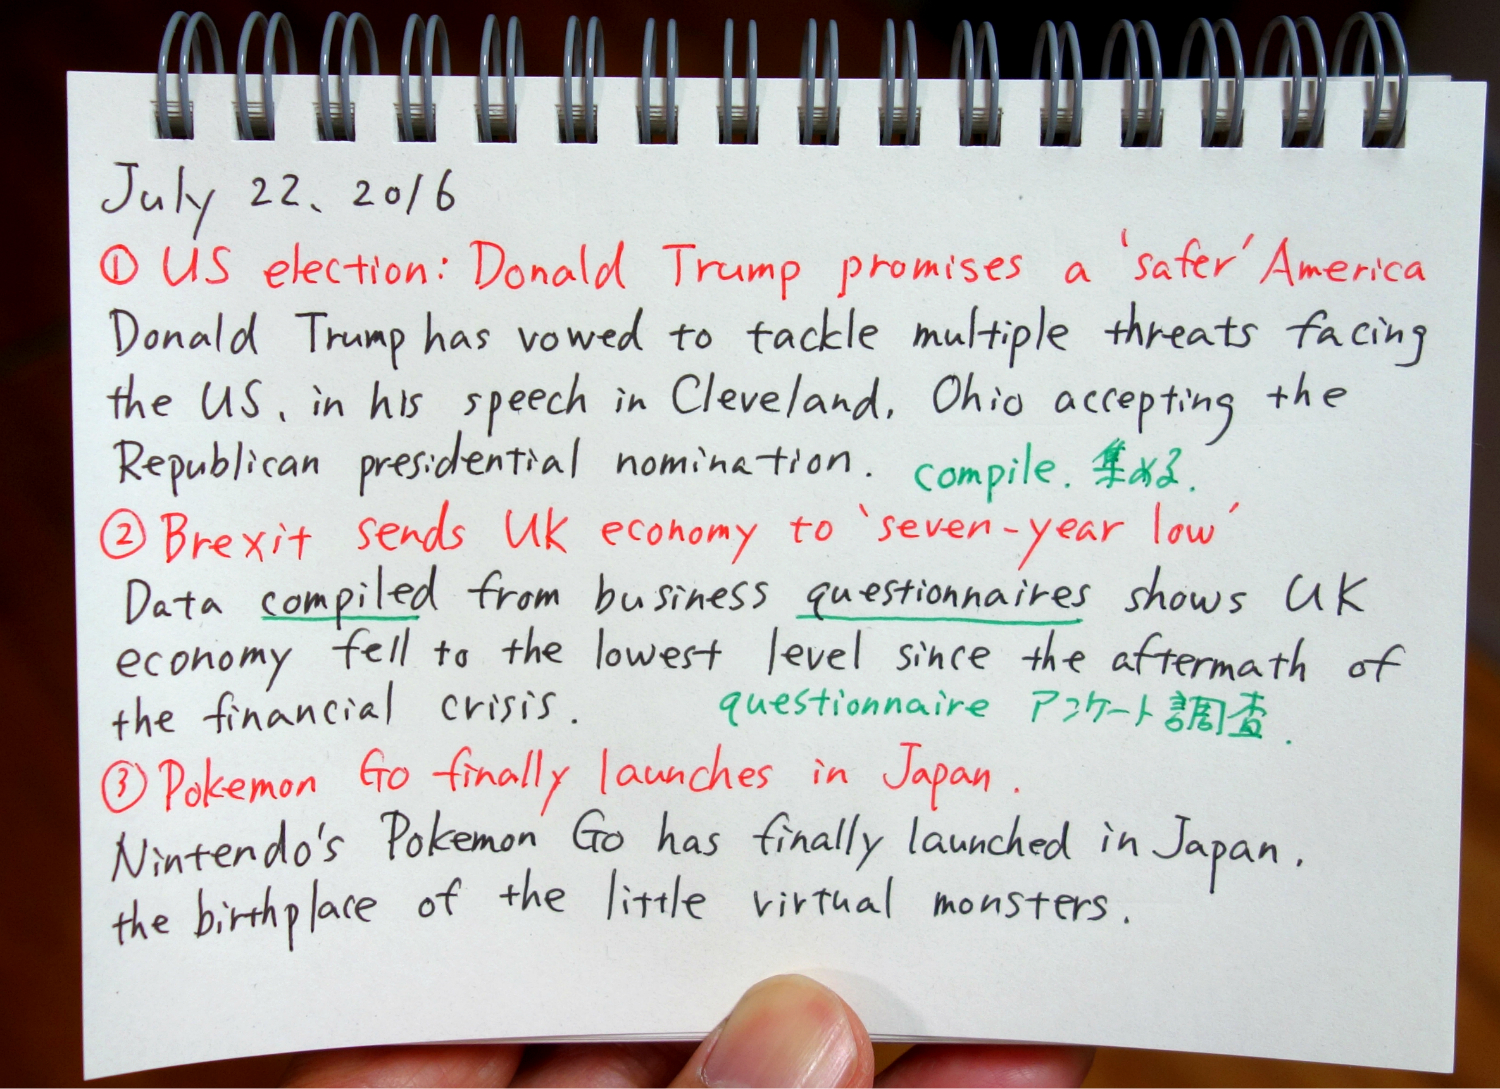 July 22、2016
① US election: Donald Trump promises a 'safer' America
Donald Trump has vowed to tackle multiple threats facing
the US, in his speech in Cleveland, Ohio accepting the
Republican presidential nomination. compile. 集める.
② Brexit sends UK economy to 'seven-year low'
Data compiled from business questionnaires shows UK
economy fell to the lowest level since the aftermath of
the financial crisis. questionnaire アンケート調査.
③ Pokemon Go finally launches in Japan.
Nintendo's Pokemon Go has finally launched in Japan,
the birthplace of the little virtual monsters.